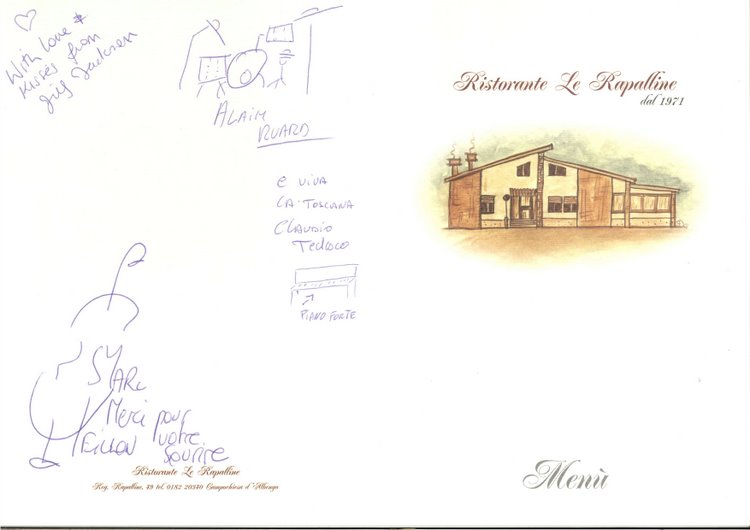 With love &
Kisses from
Jackson
ALAIN
RUARD
e VIVA
LA TOSCANA
CLAUDIO
TEDESCO
PIANO FORTE
Merci pour
votre
Sourire
Ristorante Le Rapalline
Reg. Rapalline, 49 tel. 0182 20340 Campochiesa d'Albenga
Ristorante Le Rapalline
dal 1971
Menù